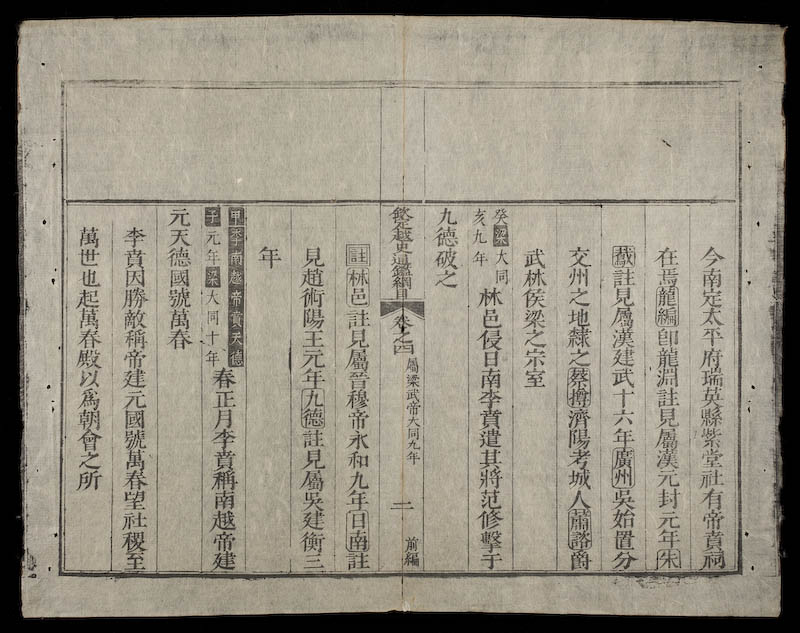 今南定太平府瑞英縣紫堂社有帝賁祠
在焉龍編卽龍淵註見屬漢元封元年朱
䳒註見屬漢建武十六年廣州吳始置分
交州之地隷之蔡撙濟陽考城人蕭諮爵
武林侯梁之宗室
癸亥梁大同九年林邑侵日南李賁遣其將范修擊于
九德破之
欽定越史通鑑綱目 卷之四 屬梁武帝大同九年 二 前編
註林邑註見屬晉穆帝永和九年日南註
見趙術陽王元年九德註見屬吳建衡三
年
甲子李南越帝賁天德元年梁大同十年春正月李賁稱南越帝建
元天德國號萬春
李賁因勝敵稱帝建元國號萬春望社稷至
萬世也起萬春殿以爲朝會之所